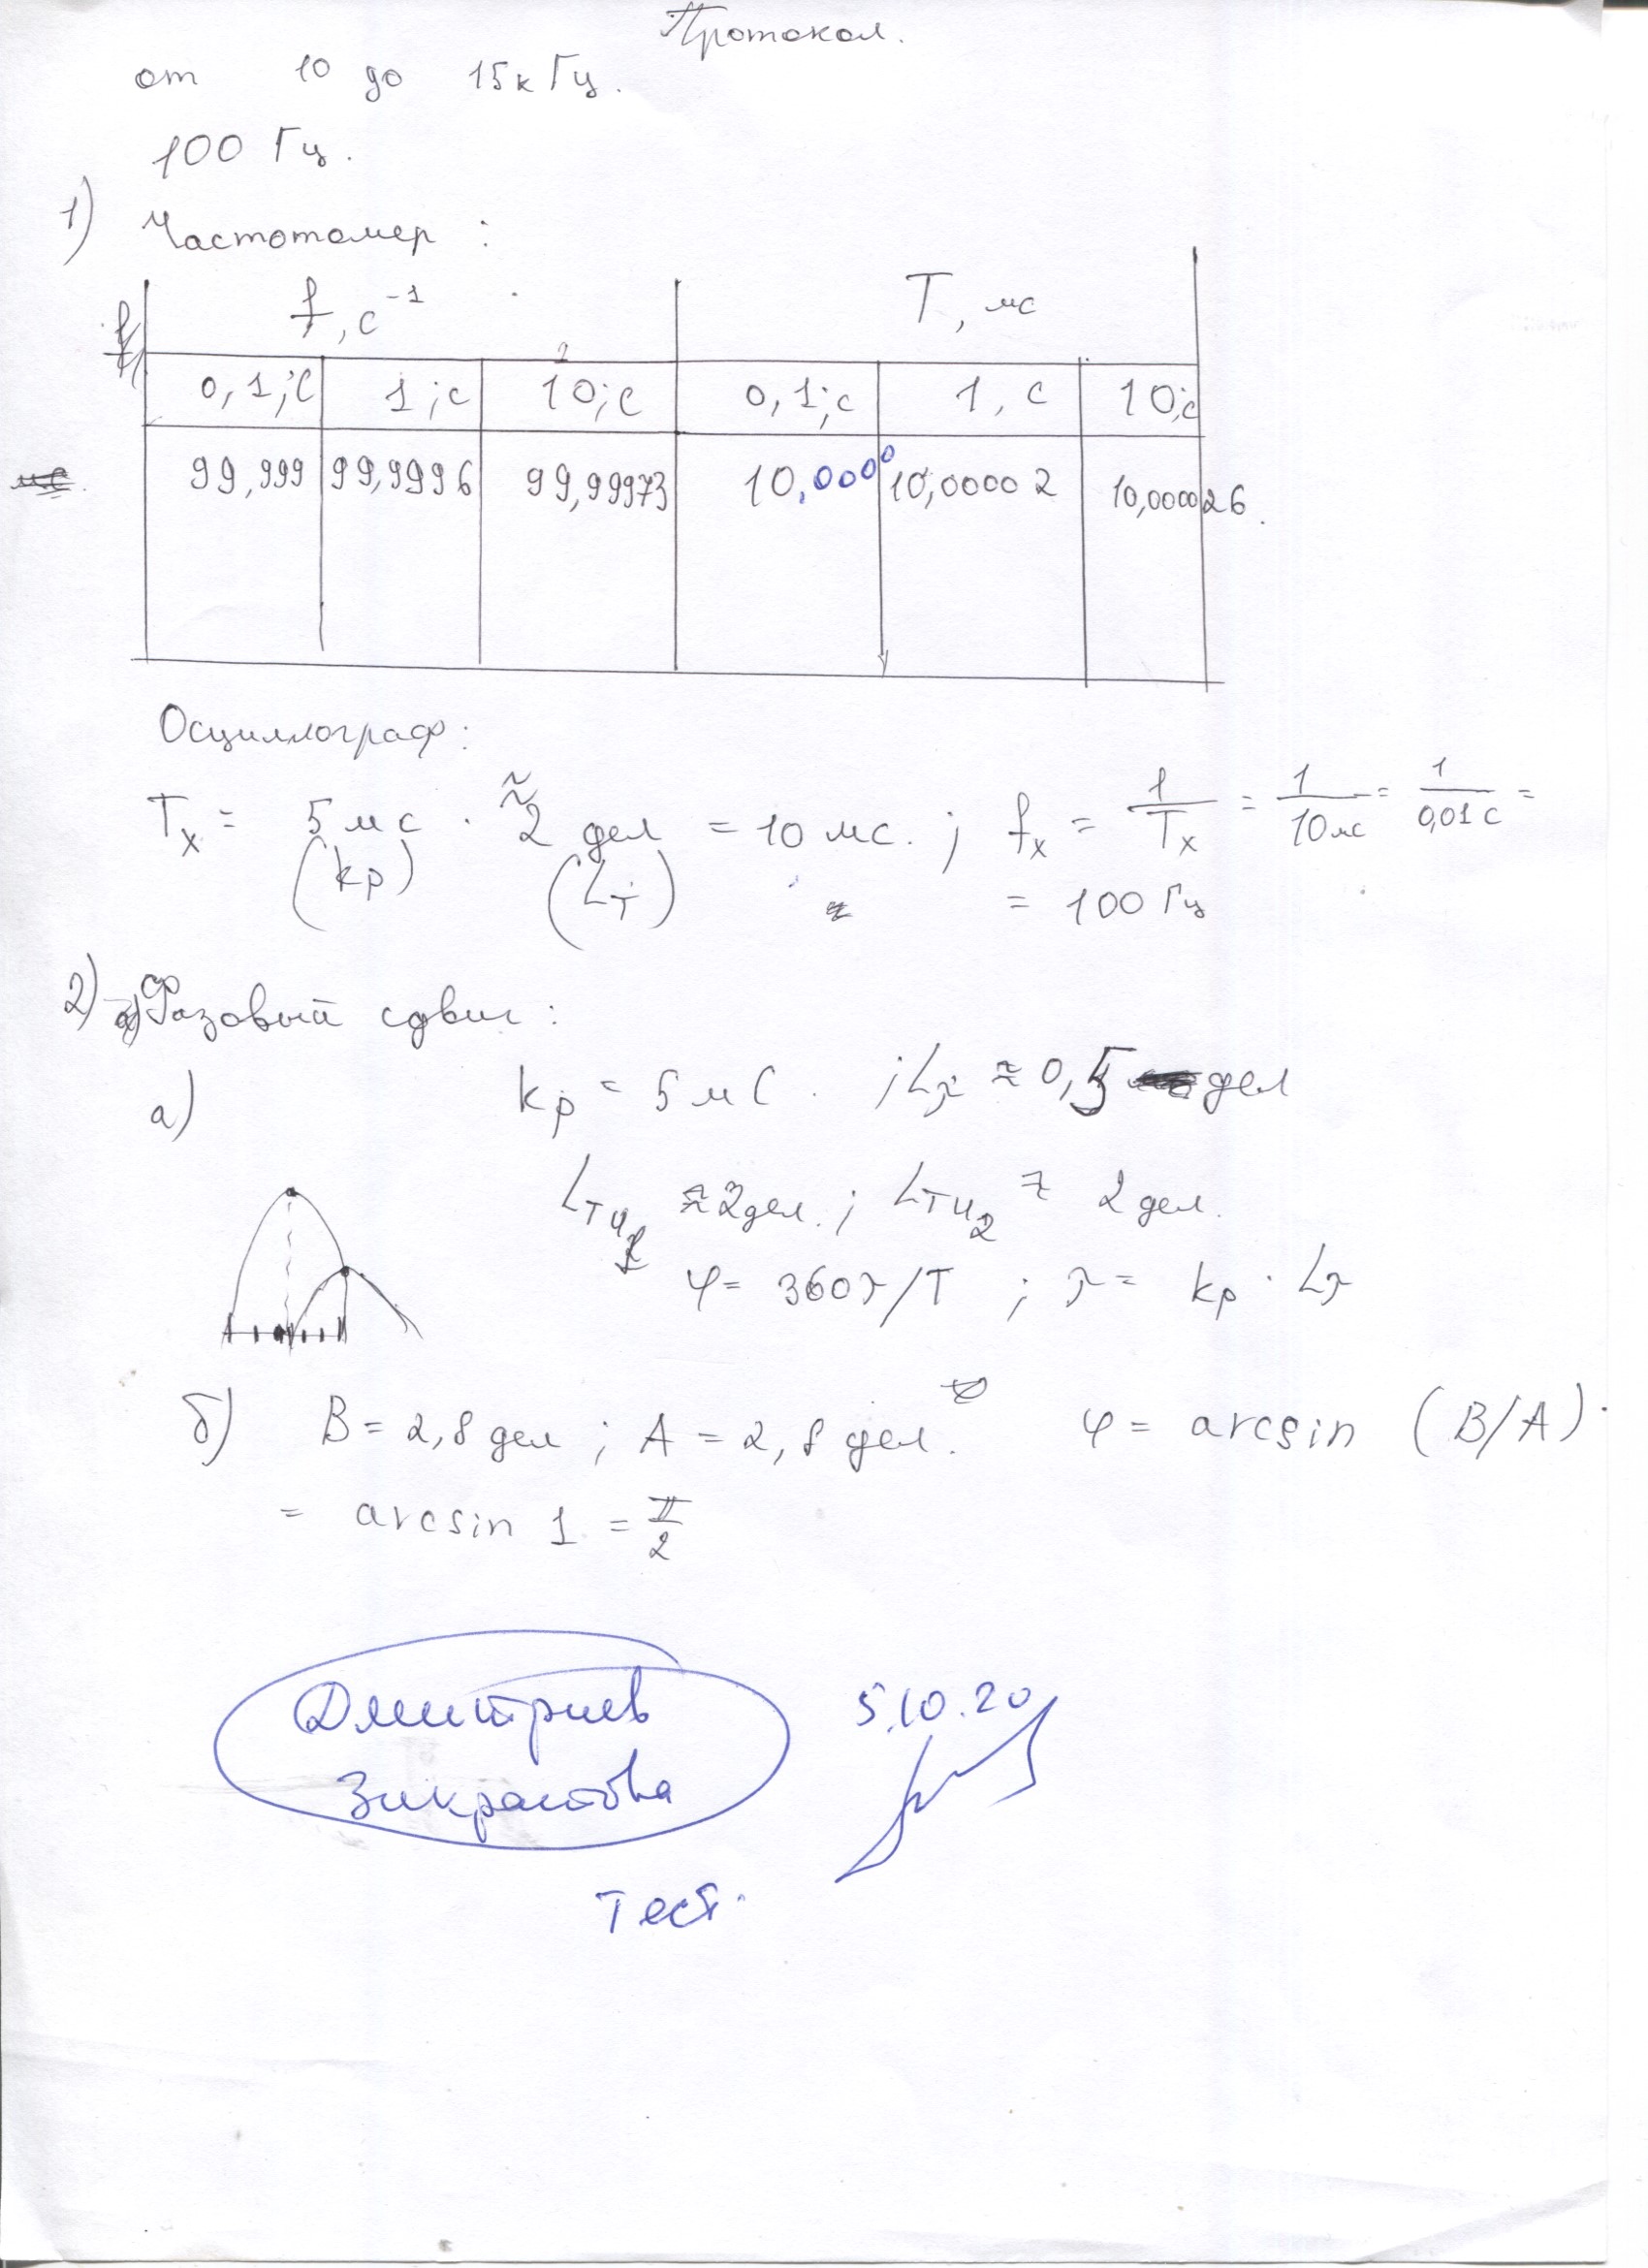 Протокол.
от 10 до 15кГц.
100 Гц.
1) Частотомер :
f, с⁻¹ T, мс
0,1;с 1;с 10;с 0,1;с 1, с 10;с
99,999 99,9996 99,99973 10,0000 10,00002 10,000026.
Осциллограф:
Tx = 5 мс · ≈2 дел = 10 мс. ; fx = 1/Tx = 1/10мс = 1/0,01с =
(kp) (LT) = 100 Гц
2) Фазовый сдвиг :
а) kp = 5 мс. ; Lτ ≈ 0,5 дел
LTЧ1 ≈ 2дел. ; LTЧ2 ≈ 2 дел.
φ= 360τ/T ; τ= kp · Lτ
б) B= 2,8 дел ; A = 2,8 дел. φ= arcsin (B/A)·
= arcsin 1 = π/2
Дмитриев 5.10.20
Тест.